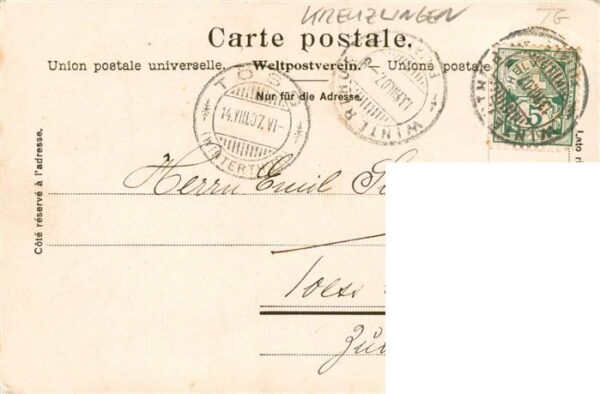 KREUZLINGEN TG
Carte postale.
Union postale universelle. Weltpostverein. Unione postale
Nur für die Adresse.
TÖSS
14.VIII.07.VI-
(WINTERTHUR)
WINTERTHUR
5
Côté réservé à l'adresse.
Lato
Herrn Emil
Toess